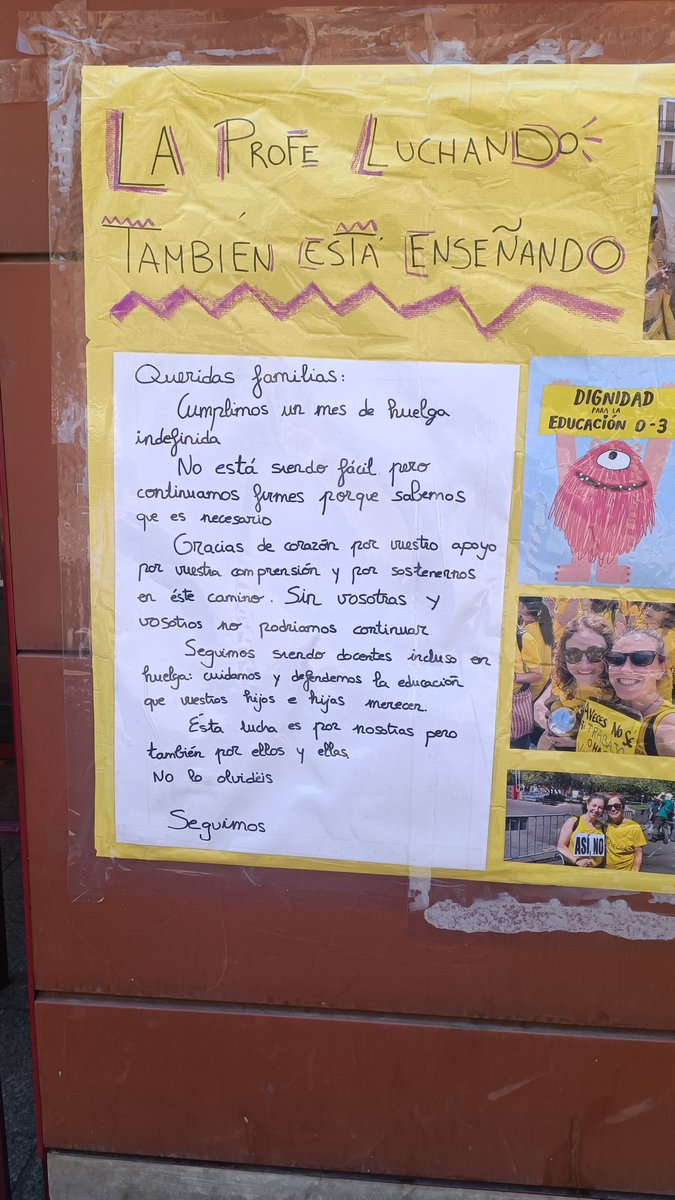 LA PROFE LUCHANDO
TAMBIÉN ESTÁ ENSEÑANDO
Queridas familias:
Cumplimos un mes de huelga
indefinida
No está siendo fácil pero
continuamos firmes porque sabemos
que es necesario
Gracias de corazón por vuestro apoyo
por vuestra comprensión y por sostenernos
en éste camino. Sin vosotras y
vosotros no podríamos continuar
Seguimos siendo docentes incluso en
huelga: cuidamos y defendemos la educación
que vuestros hijos e hijas merecen.
Ésta lucha es por nosotras pero
también por ellos y ellas
No lo olvidéis
Seguimos
DIGNIDAD
PARA LA
EDUCACIÓN 0-3
VECES NO SE
TRABAJO
ASÍ, NO